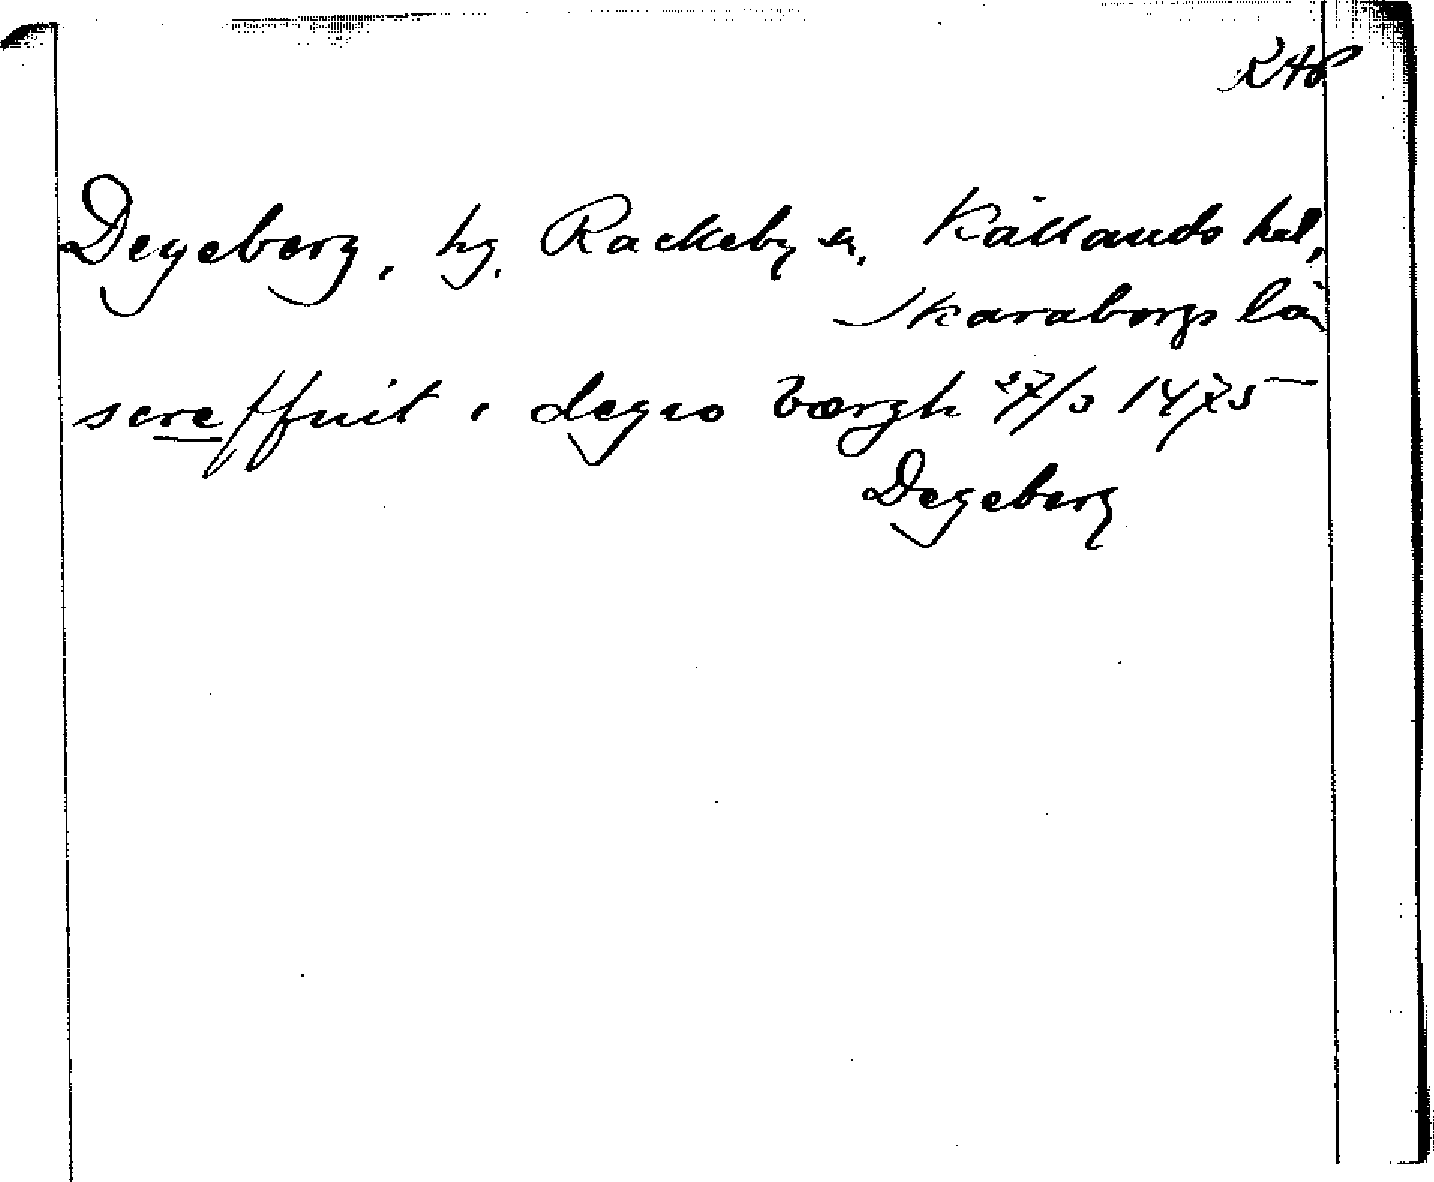 RAP
Degeberg, hg, Rackeby sn, Kållands hd,
Skaraborgs län
screffuit i degro bærgh 27/3 1475
Degeberg